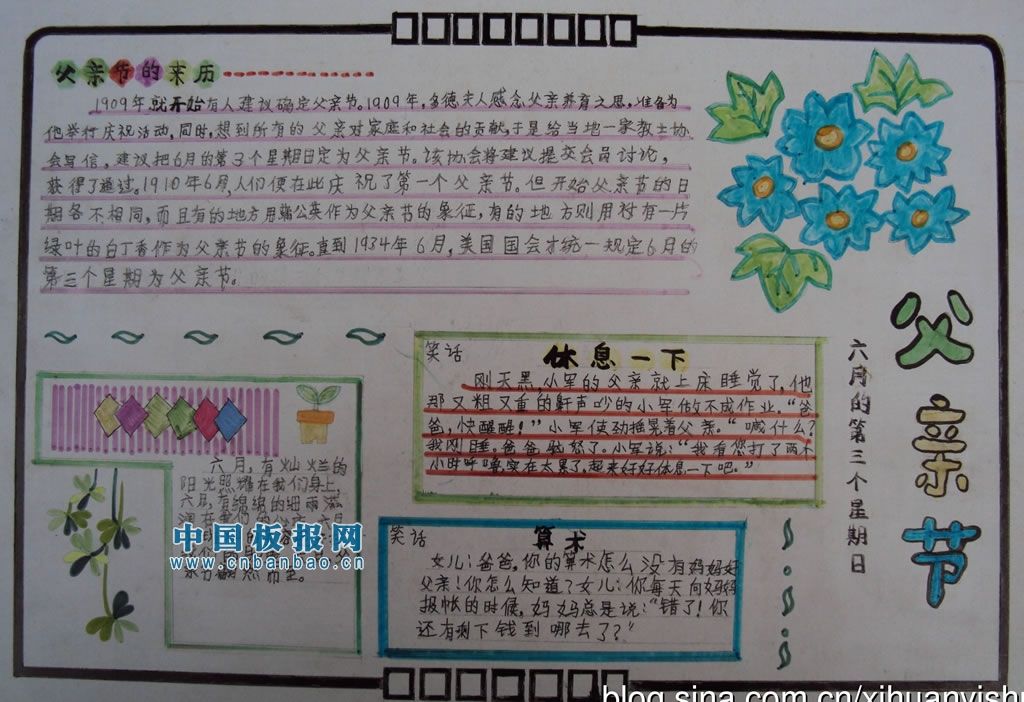 父亲节的来历
1909年就开始有人建议确定父亲节。1909年,多德夫人感念父亲养育之恩,准备为
他举行庆祝活动,同时,想到所有的父亲对家庭和社会的贡献,于是给当地一家教士协
会写信,建议把6月的第3个星期日定为父亲节。该协会将建议提交会员讨论,
获得了通过。1910年6月,人们便在此庆祝了第一个父亲节。但开始父亲节的日
期各不相同,而且有的地方用蒲公英作为父亲节的象征,有的地方则用衬有一片
绿叶的白丁香作为父亲节的象征。直到1934年6月,美国国会才统一规定6月的
第三个星期为父亲节。
父亲节
六月的第三个星期日
笑话
休息一下
刚天黑,小军的父亲就上床睡觉了,他
那又粗又重的鼾声吵的小军做不成作业。“爸
爸,快醒醒!”小军使劲摇晃着父亲。“喊什么?
我刚睡。爸爸恼怒了。小军说:“我看您打了两个
小时呼噜,实在太累了,起来好好休息一下吧。”
六月,有灿烂的
阳光照耀在我们身上,
六月,有绵绵的细雨滋
笑话
算术
女儿:爸爸,你的算术怎么没有妈妈好
父亲!你怎么知道?女儿:你每天向妈妈
报帐的时候,妈妈总是说:“错了!你
还有剩下钱到哪去了?”
中国板报网
www.cnbanbao.cn
blog.sina.com.cn/xihuanyishu